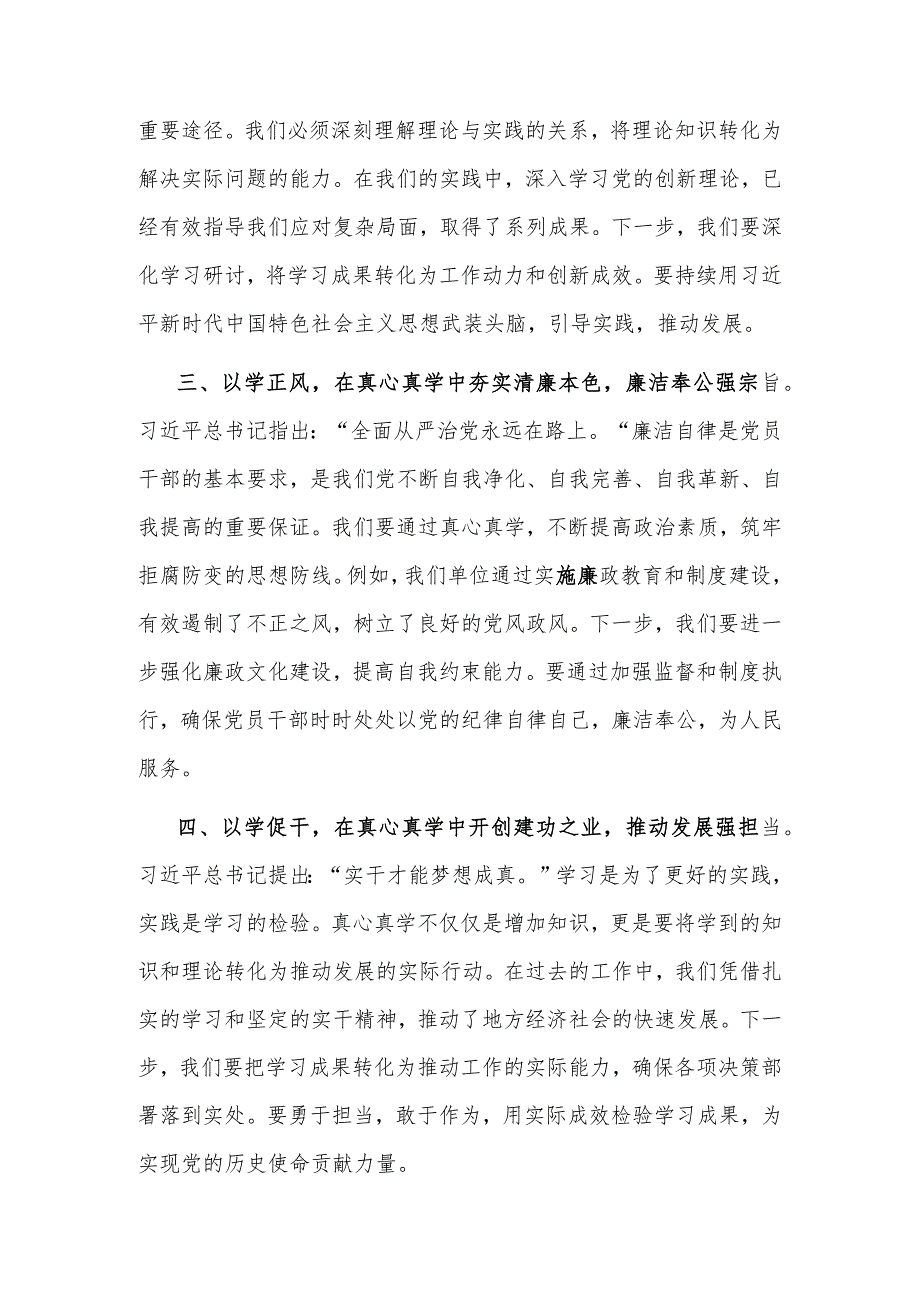 重要途径。我们必须深刻理解理论与实践的关系，将理论知识转化为
解决实际问题的能力。在我们的实践中，深入学习党的创新理论，已
经有效指导我们应对复杂局面，取得了系列成果。下一步，我们要深
化学习研讨，将学习成果转化为工作动力和创新成效。要持续用习近
平新时代中国特色社会主义思想武装头脑，引导实践，推动发展。
三、以学正风，在真心真学中夯实清廉本色，廉洁奉公强宗旨。
习近平总书记指出：“全面从严治党永远在路上。“廉洁自律是党员
干部的基本要求，是我们党不断自我净化、自我完善、自我革新、自
我提高的重要保证。我们要通过真心真学，不断提高政治素质，筑牢
拒腐防变的思想防线。例如，我们单位通过实施廉政教育和制度建设，
有效遏制了不正之风，树立了良好的党风政风。下一步，我们要进一
步强化廉政文化建设，提高自我约束能力。要通过加强监督和制度执
行，确保党员干部时时处处以党的纪律自律自己，廉洁奉公，为人民
服务。
四、以学促干，在真心真学中开创建功之业，推动发展强担当。
习近平总书记提出：“实干才能梦想成真。”学习是为了更好的实践，
实践是学习的检验。真心真学不仅仅是增加知识，更是要将学到的知
识和理论转化为推动发展的实际行动。在过去的工作中，我们凭借扎
实的学习和坚定的实干精神，推动了地方经济社会的快速发展。下一
步，我们要把学习成果转化为推动工作的实际能力，确保各项决策部
署落到实处。要勇于担当，敢于作为，用实际成效检验学习成果，为
实现党的历史使命贡献力量。